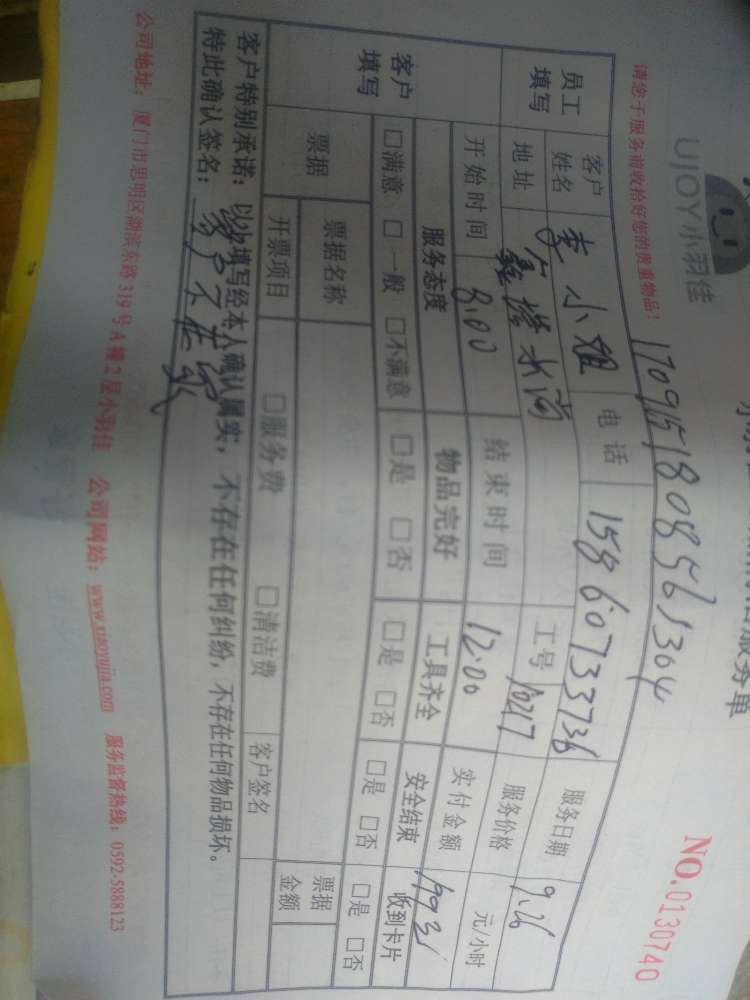 UJOY小羽佳
服务单
NO.0130740
请您于服务前收拾好您的贵重物品！
员工填写
客户姓名 李小姐 电话 15860733736 服务日期 9.26
地址 工号 服务价格 元/小时
开始时间 8:00 结束时间 12:00 实付金额
客户填写
服务态度 物品完好 工具齐全 安全结束 收到卡片
□满意 □一般 □不满意 □是 □否 □是 □否 □是 □否 □是 □否
票据 票据名称 票据金额
开票项目 □服务费 □清洁费 客户签名
客户特别承诺：以上填写经本人确认属实，不存在任何纠纷，不存在任何物品损坏。
特此确认签名：客户不在家
公司地址：厦门市思明区湖滨东路319号A幢2层小羽佳 公司网站：www.xiaoyujia.com 服务监督热线：0592-5888123